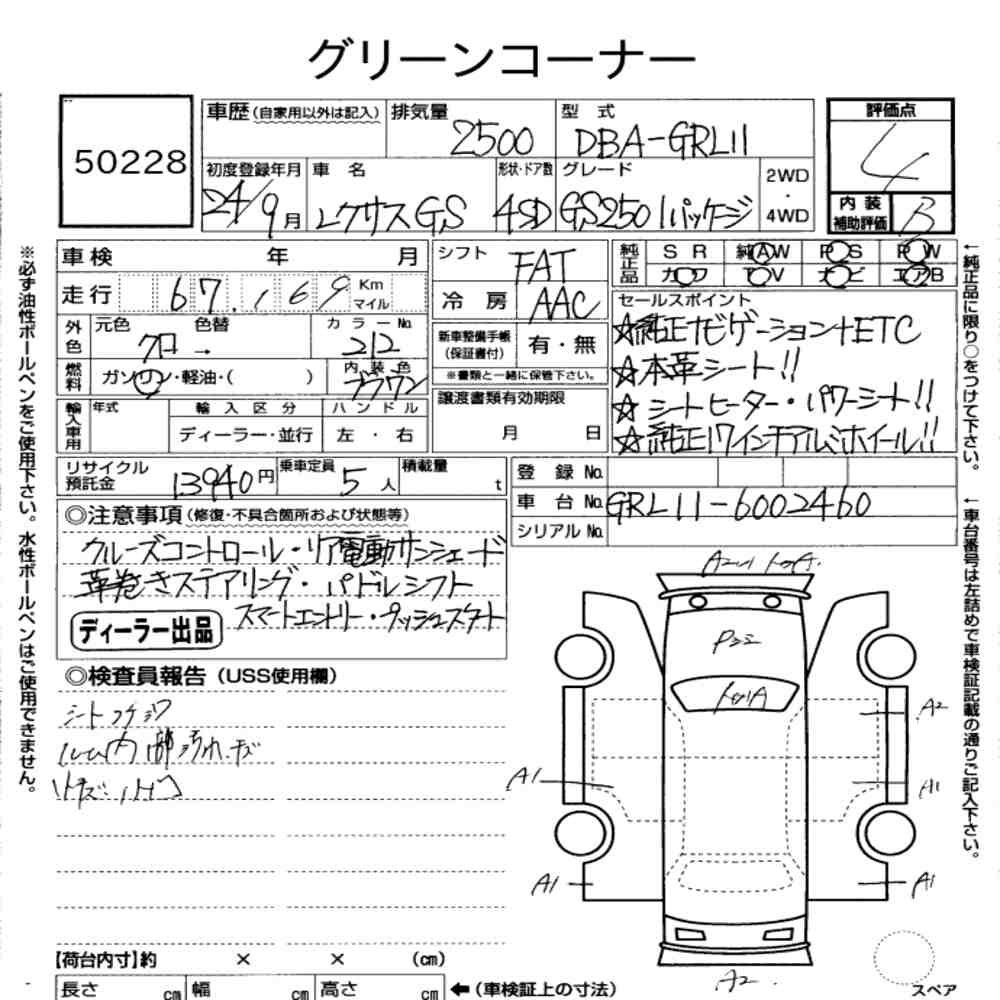 グリーンコーナー
50228
車歴(自家用以外は記入)
排気量
2500
型式
DBA-GRL11
評価点
4
初度登録年月
24/9月
車名
レクサスGS
形状・ドア数
4SD
グレード
GS250 Iパッケージ
2WD
・
4WD
内装
補助評価
B
車検 年 月
シフト
FAT
純正品
SR 純AW PS PW
カワ TV ナビ エアB
走行 67.169 Km マイル
冷房
AAC
セールスポイント
☆純正ナビゲーション+ETC
☆本革シート!!
☆シートヒーター・パワーシート!!
☆純正17インチアルミホイール!!
外色
元色 色替
クロ →
カラーNo.
212
新車整備手帳
(保証書付)
有・無
※書類と一緒に保管下さい。
燃料
ガソリン・軽油・( )
内装色
ブラウン
譲渡書類有効期限
月 日
輸入車用
年式
輸入区分
ディーラー・並行
ハンドル
左・右
リサイクル
預託金
13940円
乗車定員
5人
積載量
t
登録No.
車台No. GRL11-6002460
シリアルNo.
◎注意事項(修復・不具合箇所および状態等)
クルーズコントロール・リア電動サンシェード
革巻きステアリング・パドルシフト
スマートエントリー・プッシュスタート
ディーラー出品
◎検査員報告(USS使用欄)
ルーム内
A2
A1
A1
A1
A1
A2
【荷台内寸】約 × × (cm)
長さ cm 幅 cm 高さ cm
←(車検証上の寸法)
スペア
※必ず油性ボールペンをご使用下さい。水性ボールペンはご使用できません。
←純正品に限り○をつけて下さい。
←車台番号は左詰めで車検証記載の通りご記入下さい。